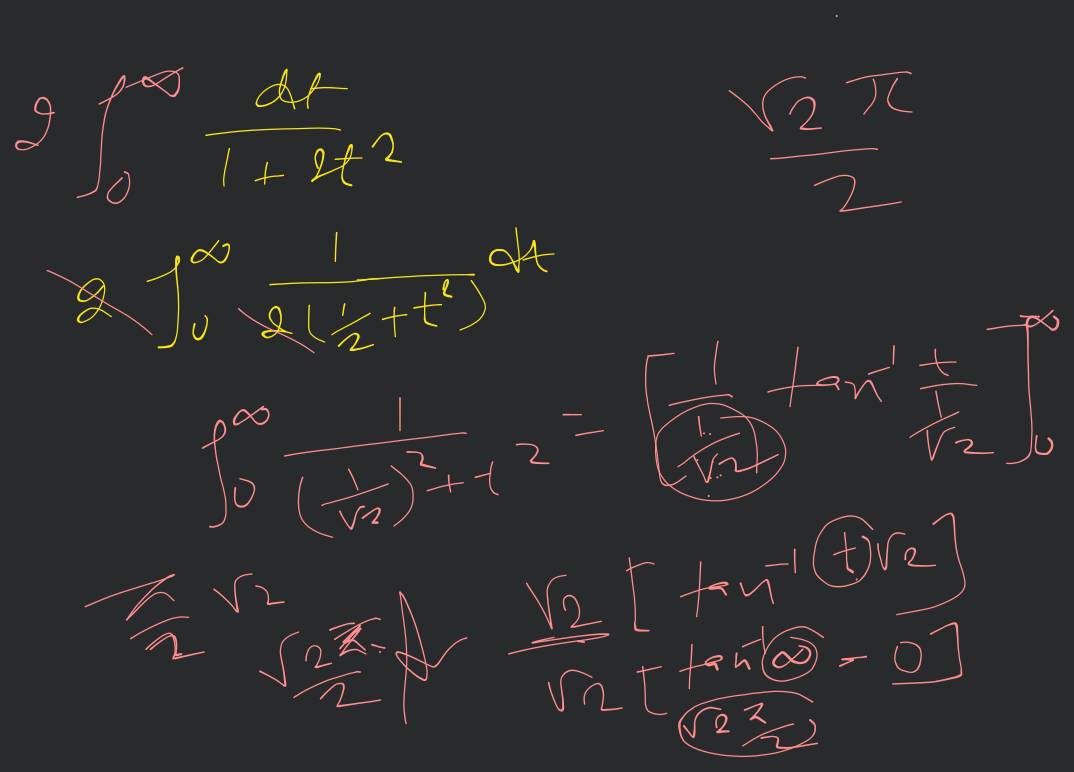 2 ∫₀^∞ dt / (1 + 2t²)
√2 π / 2
2 ∫₀^∞ 1 / (2(1/2 + t²)) dt
∫₀^∞ 1 / ((1/√2)² + t²) = [1/(1/√2) tan⁻¹ t/(1/√2)]₀^∞
√2 [tan⁻¹ t√2]
π/2 √2
√2 π/2
√2 [tan⁻¹ ∞ - 0]
√2 π/2